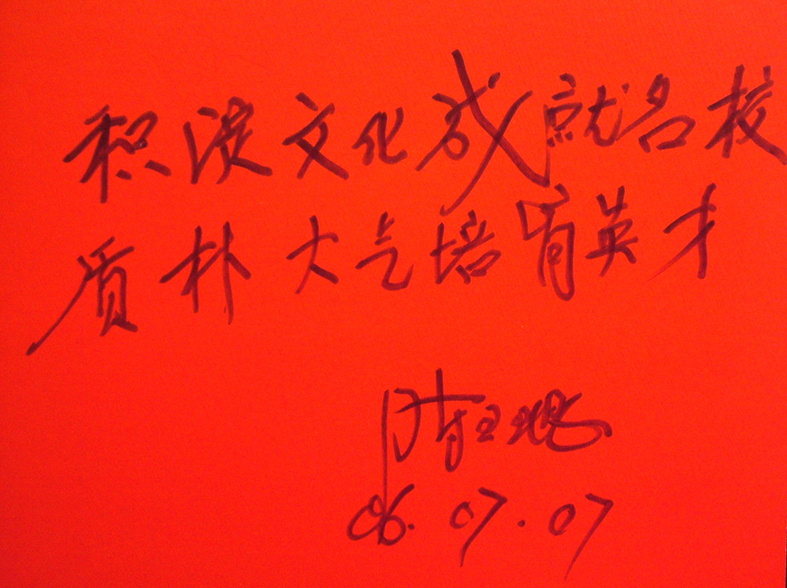 积淀文化成就名校
质朴大气培育英才
06.07.07